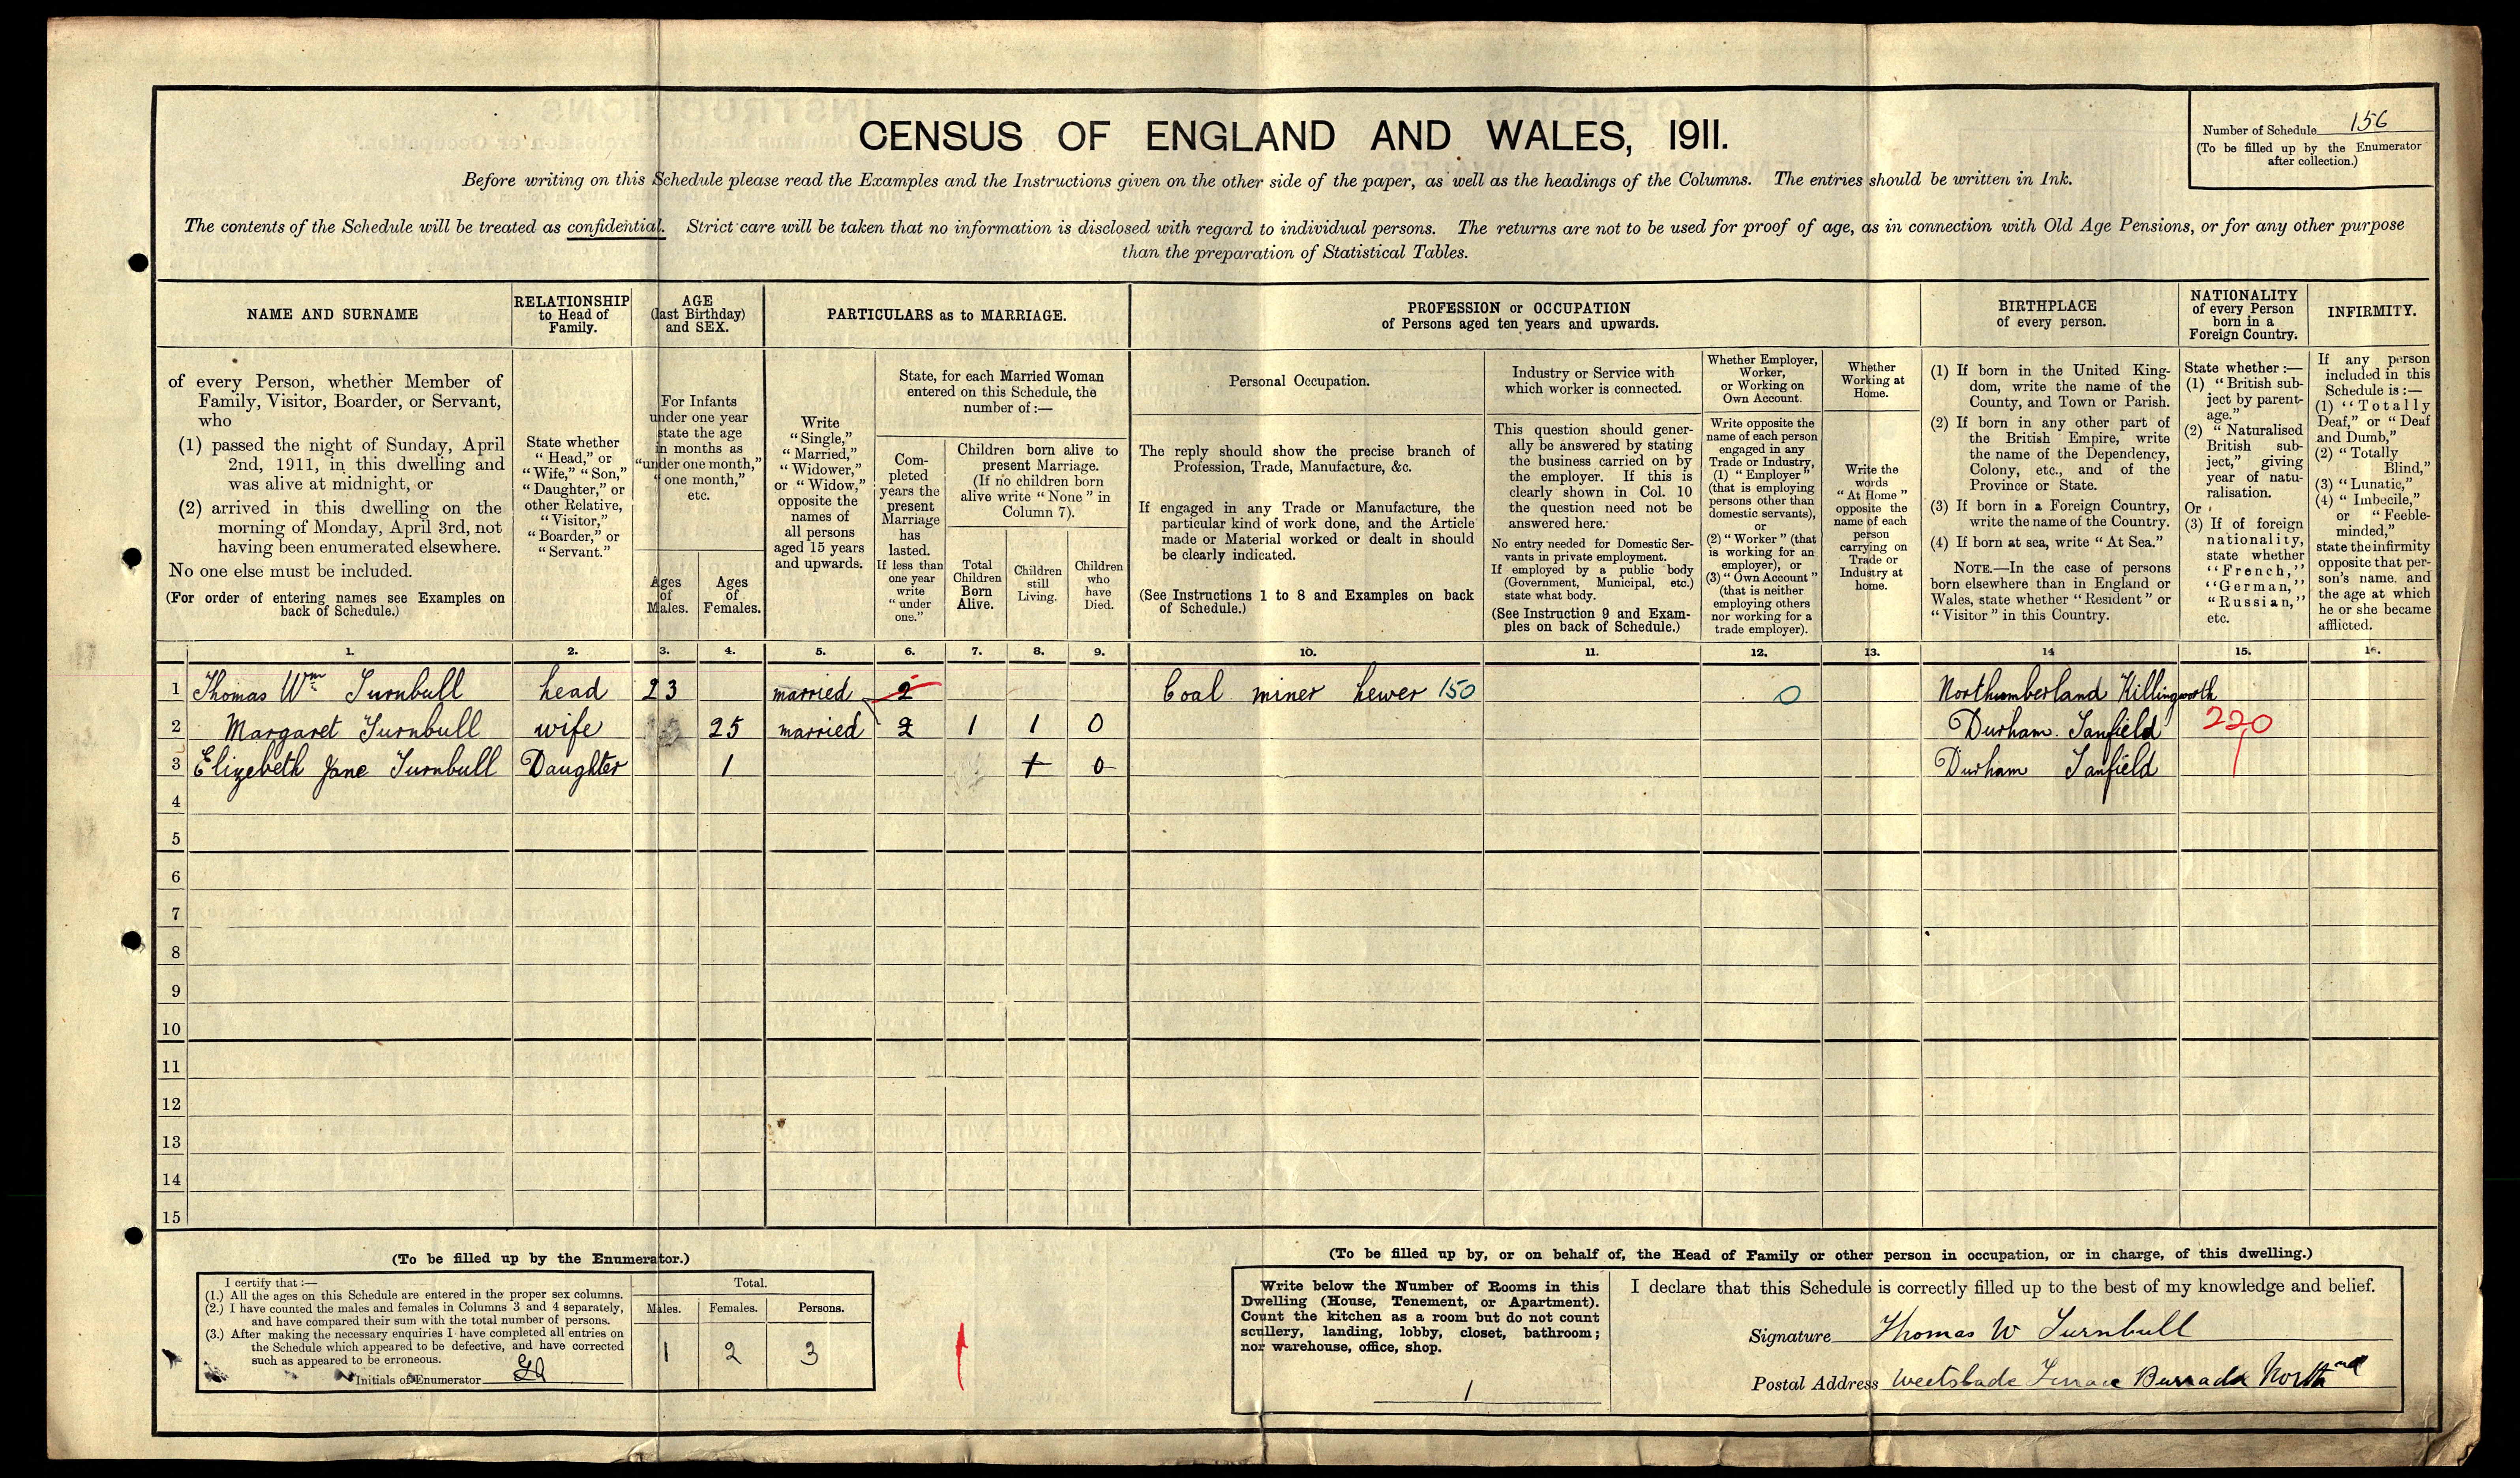 CENSUS OF ENGLAND AND WALES, 1911.
Number of Schedule 156
(To be filled up by the Enumerator
after collection.)
Before writing on this Schedule please read the Examples and the Instructions given on the other side of the paper, as well as the headings of the Columns. The entries should be written in Ink.
The contents of the Schedule will be treated as confidential. Strict care will be taken that no information is disclosed with regard to individual persons. The returns are not to be used for proof of age, as in connection with Old Age Pensions, or for any other purpose
than the preparation of Statistical Tables.
NAME AND SURNAME
of every Person, whether Member of
Family, Visitor, Boarder, or Servant,
who
(1) passed the night of Sunday, April
2nd, 1911, in this dwelling and
was alive at midnight, or
(2) arrived in this dwelling on the
morning of Monday, April 3rd, not
having been enumerated elsewhere.
No one else must be included.
(For order of entering names see Examples on
back of Schedule.)
RELATIONSHIP
to Head of
Family.
State whether
"Head," or
"Wife," "Son,"
"Daughter," or
other Relative,
"Visitor,"
"Boarder," or
"Servant."
AGE
(last Birthday)
and SEX.
For Infants
under one year
state the age
in months as
"under one month,"
"one month,"
etc.
Ages
of
Males.
Ages
of
Females.
PARTICULARS as to MARRIAGE.
Write
"Single,"
"Married,"
"Widower,"
or "Widow,"
opposite the
names of
all persons
aged 15 years
and upwards.
State, for each Married Woman
entered on this Schedule, the
number of:—
Com-
pleted
years the
present
Marriage
has
lasted.
If less than
one year
write
"under
one."
Children born alive to
present Marriage.
(If no children born
alive write "None" in
Column 7).
Total
Children
Born
Alive.
Children
still
Living.
Children
who
have
Died.
PROFESSION or OCCUPATION
of Persons aged ten years and upwards.
Personal Occupation.
The reply should show the precise branch of
Profession, Trade, Manufacture, &c.
If engaged in any Trade or Manufacture, the
particular kind of work done, and the Article
made or Material worked or dealt in should
be clearly indicated.
(See Instructions 1 to 8 and Examples on back
of Schedule.)
Industry or Service with
which worker is connected.
This question should gener-
ally be answered by stating
the business carried on by
the employer. If this is
clearly shown in Col. 10
the question need not be
answered here.
No entry needed for Domestic Ser-
vants in private employment.
If employed by a public body
(Government, Municipal, etc.)
state what body.
(See Instruction 9 and Exam-
ples on back of Schedule.)
Whether Employer,
Worker,
or Working on
Own Account.
Write opposite the
name of each person
engaged in any
Trade or Industry,
(1) "Employer"
(that is employing
persons other than
domestic servants),
or
(2) "Worker" (that
is working for an
employer), or
(3) "Own Account"
(that is neither
employing others
nor working for a
trade employer).
Whether
Working at
Home.
Write the
words
"At Home"
opposite the
name of each
person
carrying on
Trade or
Industry at
home.
BIRTHPLACE
of every person.
(1) If born in the United King-
dom, write the name of the
County, and Town or Parish.
(2) If born in any other part of
the British Empire, write
the name of the Dependency,
Colony, etc., and of the
Province or State.
(3) If born in a Foreign Country,
write the name of the Country.
(4) If born at sea, write "At Sea."
NOTE.—In the case of persons
born elsewhere than in England or
Wales, state whether "Resident" or
"Visitor" in this Country.
NATIONALITY
of every Person
born in a
Foreign Country.
State whether:—
(1) "British sub-
ject by parent-
age."
(2) "Naturalised
British sub-
ject," giving
year of natu-
ralisation.
Or
(3) If of foreign
nationality,
state whether
"French,"
"German,"
"Russian,"
etc.
INFIRMITY.
If any person
included in this
Schedule is:—
(1) "Totally
Deaf," or "Deaf
and Dumb,"
(2) "Totally
Blind,"
(3) "Lunatic,"
(4) "Imbecile,"
or "Feeble-
minded,"
state the infirmity
opposite that per-
son's name, and
the age at which
he or she became
afflicted.
1. 2. 3. 4. 5. 6. 7. 8. 9. 10. 11. 12. 13. 14 15. 16.
1 Thomas Wm Turnbull head 23 married 2 Coal miner hewer 150 0 Northumberland Killingworth
2 Margaret Turnbull wife 25 married 2 1 1 0 Durham Tanfield 220
3 Elizebeth Jane Turnbull Daughter 1 1 0 Durham Tanfield
4
5
6
7
8
9
10
11
12
13
14
15
(To be filled up by the Enumerator.)
I certify that:—
(1.) All the ages on this Schedule are entered in the proper sex columns.
(2.) I have counted the males and females in Columns 3 and 4 separately,
and have compared their sum with the total number of persons.
(3.) After making the necessary enquiries I have completed all entries on
the Schedule which appeared to be defective, and have corrected
such as appeared to be erroneous.
Initials of Enumerator
Total.
Males. Females. Persons.
1 2 3
(To be filled up by, or on behalf of, the Head of Family or other person in occupation, or in charge, of this dwelling.)
Write below the Number of Rooms in this
Dwelling (House, Tenement, or Apartment).
Count the kitchen as a room but do not count
scullery, landing, lobby, closet, bathroom;
nor warehouse, office, shop.
1
I declare that this Schedule is correctly filled up to the best of my knowledge and belief.
Signature Thomas W Turnbull
Postal Address Weetslade Terrace Burradon Northd